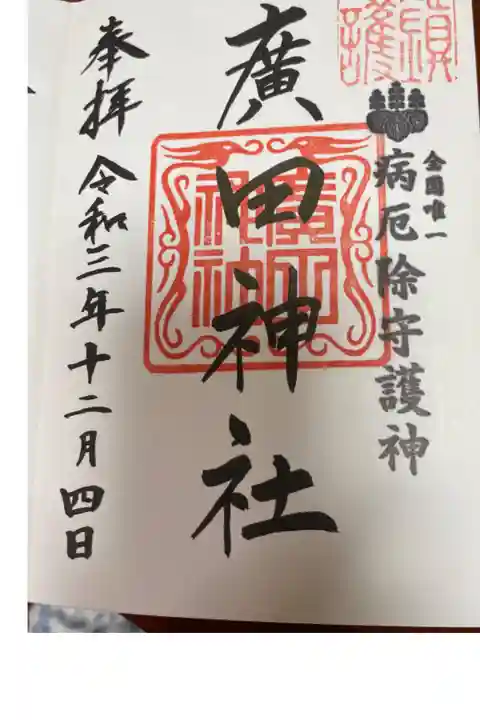 全国唯一
病厄除守護神
廣田神社
奉拝 令和三年十二月四日